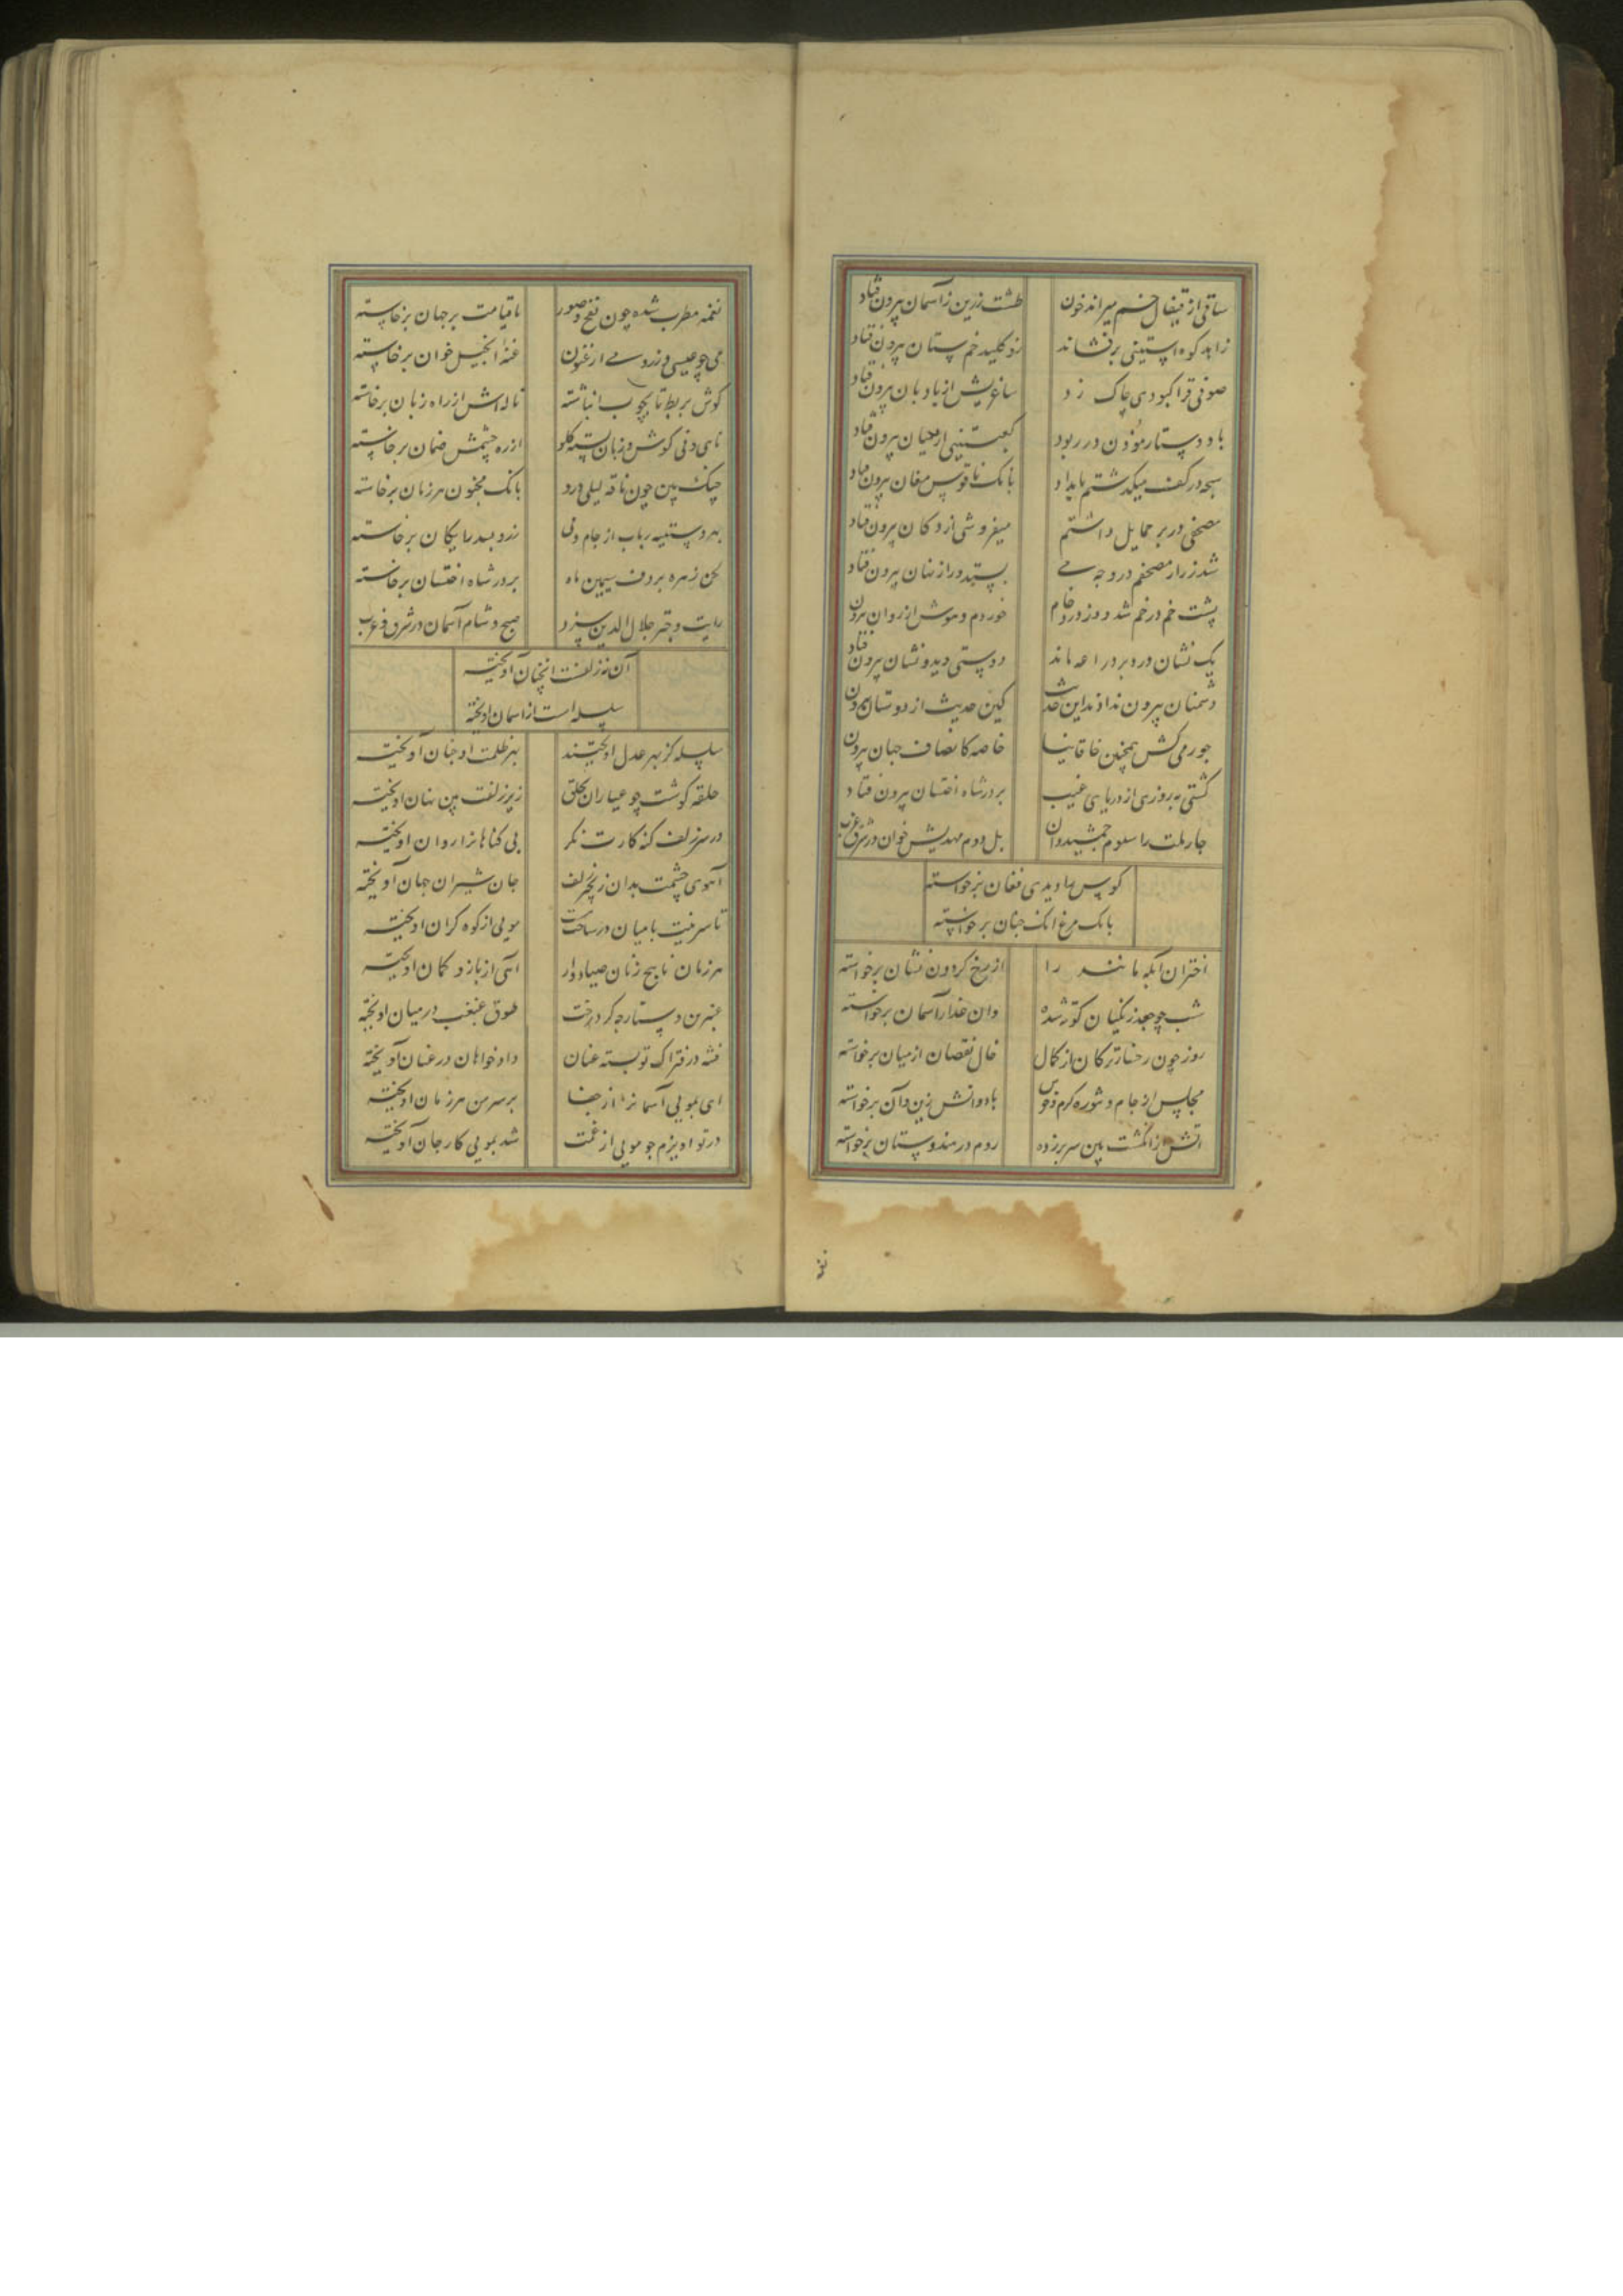 ساقی از قیفال خم میراند خون طشت زرین ز آسمان بیرون فتاد
زاهد کوه استینی برفشاند زو کلید خم پستان بیرون فتاد
صوفی قرا کبودی چاک زد ساغریش از بادبان بیرون فتاد
باد دستار مؤذن در ربود کعبتینی از میان بیرون فتاد
سبحه در کف میکذشتم بامداد بانک ناقوس مغان بیرون فتاد
مصحفی در بر حمایل داشتم میفروشی از دکان بیرون فتاد
شد ززرار مصحفم در وجه می بستد و راز نهان بیرون فتاد
پشت خم در خم شد و ز درد خام خوردم و هوش از روان بیرون
یک نشان درد بر دراعه ماند دوستی دید و نشان بیرون فتاد
دشمنان بیرون نداذند این حدیث کین حدیث از دوستان بیرون
جور می کش همچنین خاقانیا خاصه کانصاف جهان بیرون
کشتی به روزی از دریای غیب بر در شاه اخستان بیرون فتاد
چار ملت را سلوم جمشید دان بل دوم مهدیش خوان در شرق و غرب
کوس ما دیدی فغان برخواسته
بانک مرغ انک چنان برخواسته
اختران آبله مانند را از رخ کردون نشان برخواسته
شب چو جعد زنکیان کوته شده وان عذار آسمان برخواسته
روز چون رخسار ترکان از کمال خال نقصان از میان برخواسته
مجلس از جام و تنوره کرم و خوس باد و اتش زین و آن برخواسته
اتش از انکشت بین سر برزده روم در هندوستان برخواسته
نغمه
نغمه مطرب شده چون نفخ صور تا قیامت بر جهان برخاسته
می چو عیسی و ز رومی ارغنون غنه انجیل خوان برخاسته
کوش بربط تا بچوب انباشته ناله اش از راه زبان برخاسته
نای دف کوش و زبان بسته کلو از ره چشمش ضمان برخاسته
چنک بین چون ناقه لیلی و زو بانک مجنون هر زمان برخاسته
بهر دستینه رباب از جام و نی زر و بسد رایکان برخاسته
لحن زهره بر دف سیمین ماه بر در شاه اخستان برخاسته
رایت و چتر جلال الدین سزد صبح و شام آسمان در شرق و غرب
آن نه زلفست انچنان آویخته
سلسله است از اسمان اویخته
سلسله کز بهر عدل اویختند بهر ظلمت او چنان آویخته
حلقه کوشت چو عیاران بحلق زیر زلفت بین نهان اویخته
در سر زلف کنه کارت نکر بی کناهانرا روان اویخته
آهوی چشمت بدان زنجیر زلف جان شیران جهان آویخته
تا سرینت با میان در ساخت مویی از کوه کران اویخته
هر زمان ناسج زنان صیادوار اسی از بازو کمان اویخته
عنبرین دستارچه کرد رخت طوق غبغب در میان اویخته
فتنه در فتراک تو بسته عنان داد خواهان در عنان آویخته
ای بمویی آسمانرا از جفا بر سر من هر زمان اویخته
در تو اویزم چو مویی از غمت شد بمویی کار جان آویخته